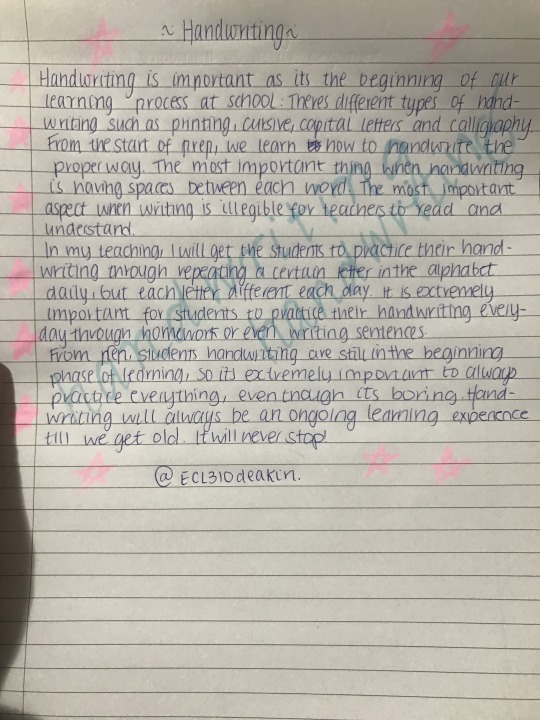 ~ Handwriting ~
Handwriting is important as its the beginning of our
learning process at school. Theres different types of hand-
writing such as printing, cursive, capital letters and calligraphy.
From the start of prep, we learn how to handwrite the
proper way. The most important thing when handwriting
is having spaces between each word. The most important
aspect when writing is illegible for teachers to read and
understand.
In my teaching, I will get the students to practice their hand-
writing through repeating a certain letter in the alphabet
daily, but each letter different each day. It is extremely
important for students to practice their handwriting every-
day through homework or even writing sentences.
From pen. Students handwriting are still in the beginning
phase of learning, so its extremely important to always
practice everything, even though its boring. Hand-
writing will always be an ongoing learning experience
till we get old. It will never stop!
@ECL310deakin.
handwriting
handwriting